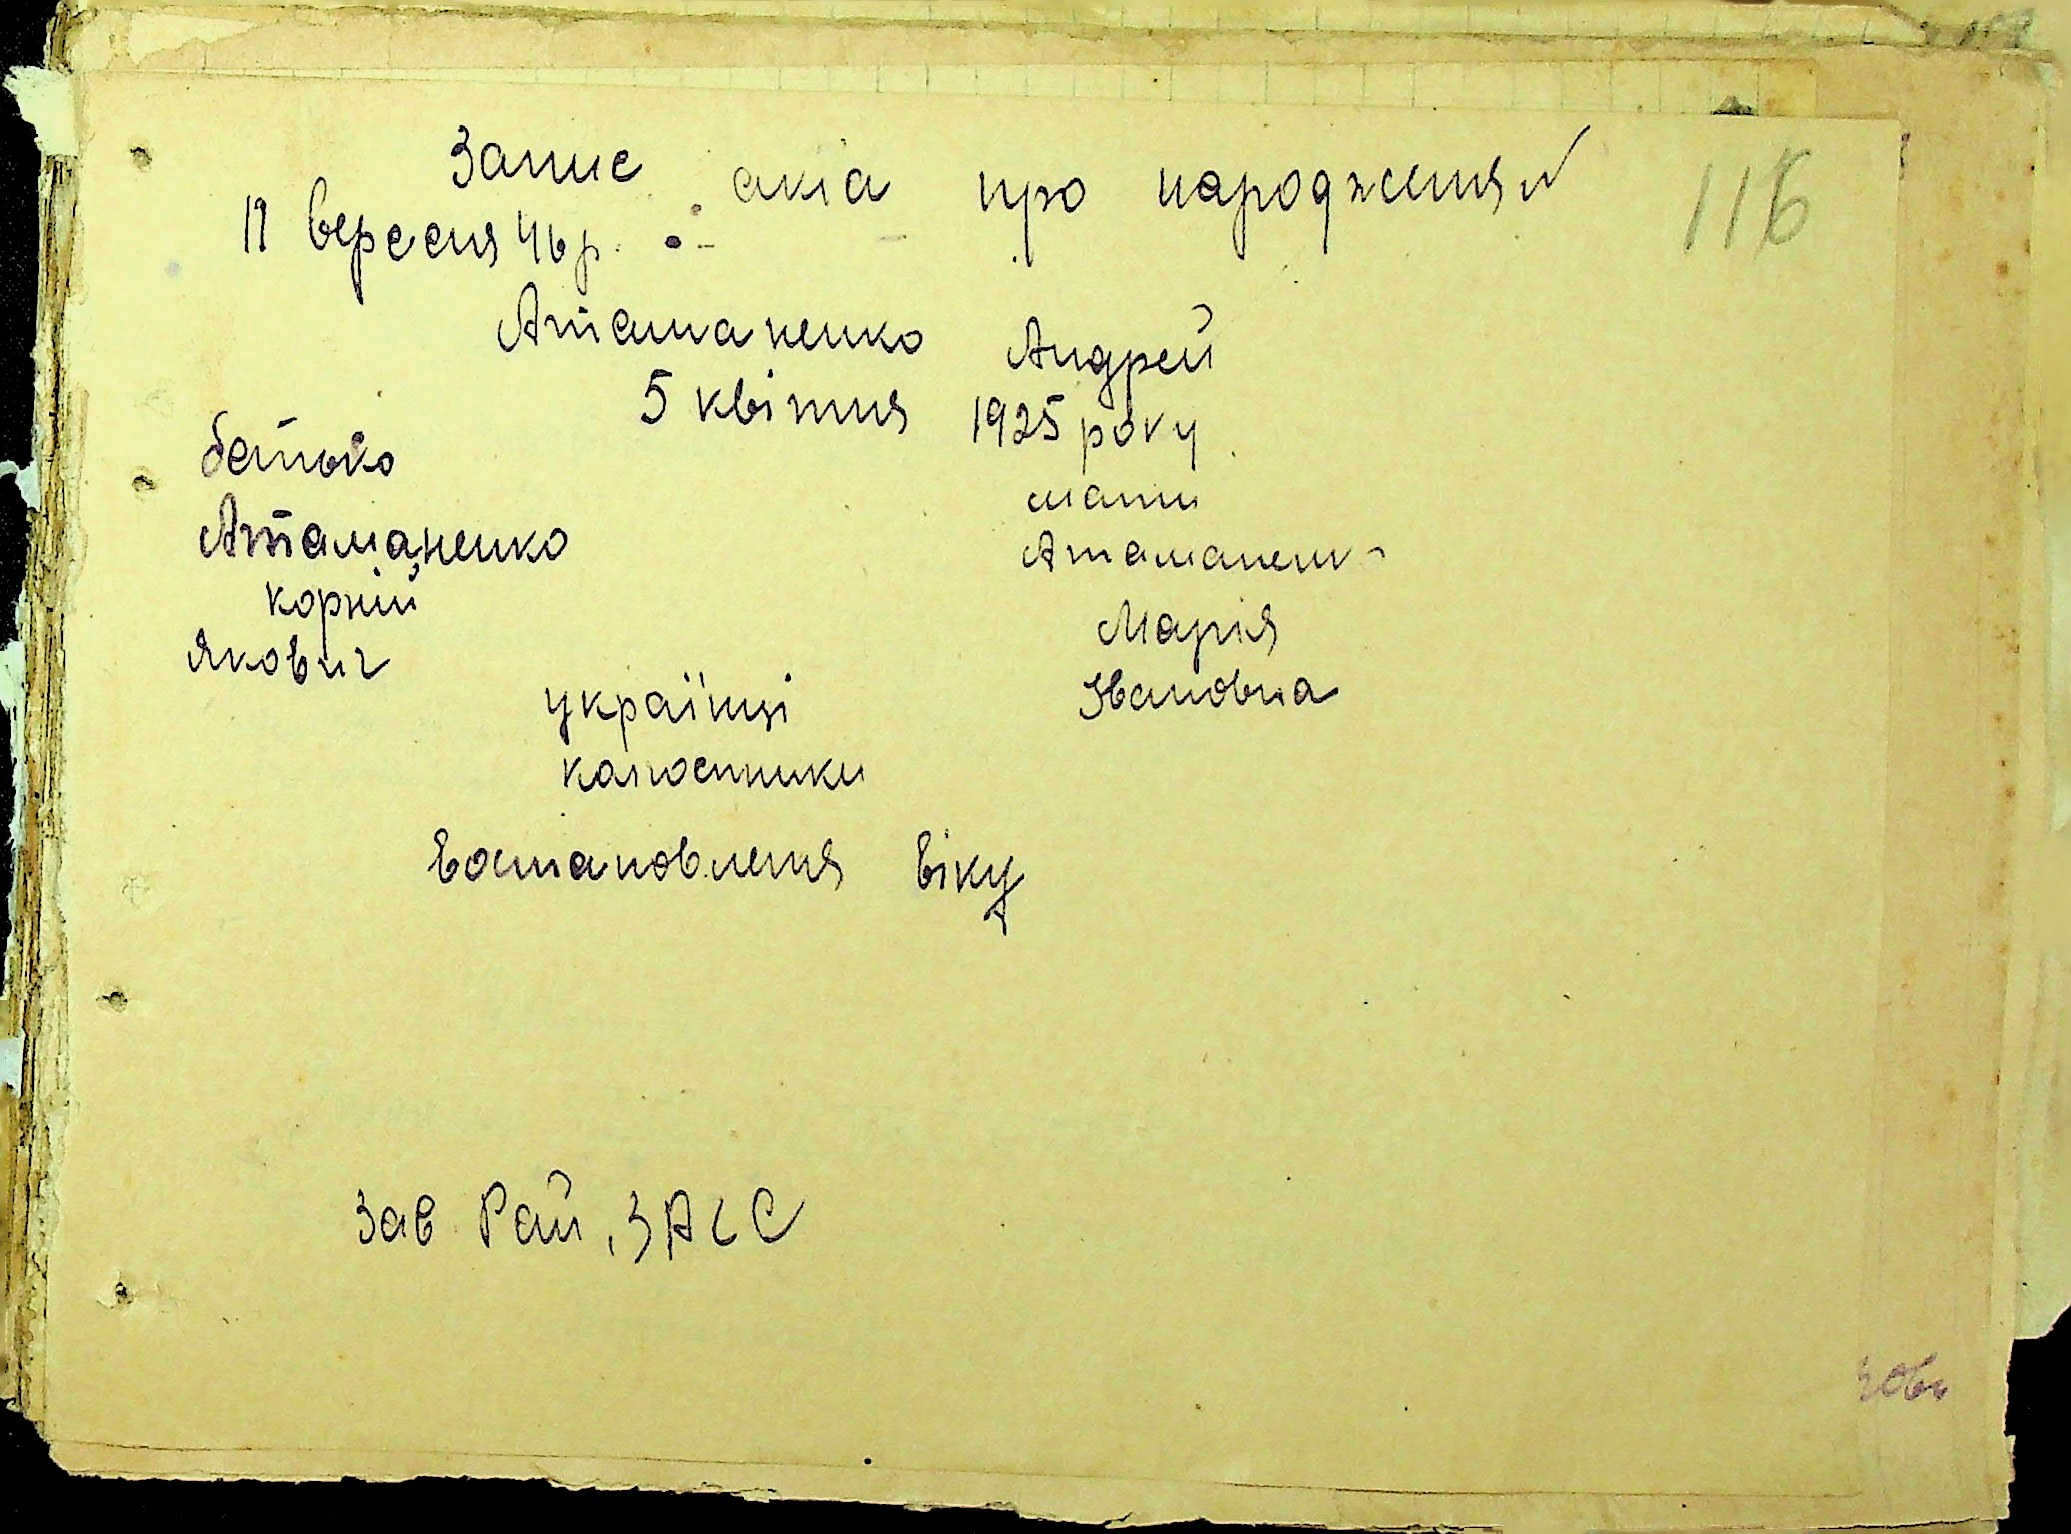 Запис акта про народження
116
11 вересня 46 р.
Атаманенко Андрей
5 квітня 1925 року
батько
мати
Атаманенко
Атаманенко
Корній
Марія
Якович
Івановна
українці
колгоспники
Востановлення віку
Зав Рай. ЗАГС